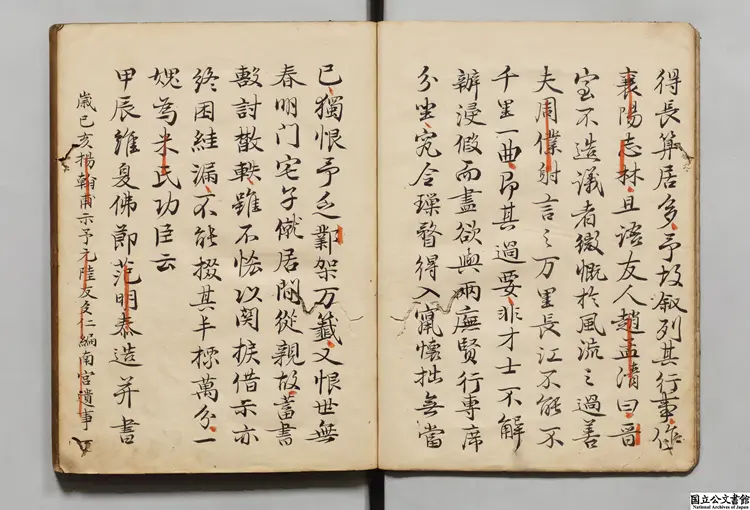 得長算居多予故叙列其行事作
襄陽志林且語友人趙孟清曰晉
宝不造議者微慨於風流之過善
夫周僕射言之万里長江不能不
千里一曲昂其過要非才士不解
辦浸假而盡欲與兩廡賢行專席
分坐寃令璅瞀得入竆懷拙無當
已獨恨予乏鄴架万籤又恨世無
春明门宅子僦居間從親故蓄書
數討散軼雖不恡以関捩借示亦
終困絓漏不能掇其半標萬分一
媿為米氏功臣云
甲辰維夏佛節范明泰造并書
歳已亥揚翰甫示予元陸友友仁編南宮遺事
国立公文書館
National Archives of Japan